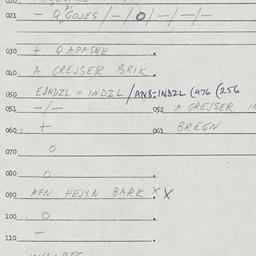 020
021 - Q GOJES /-/O/-/-/-
030 + Q APASNE
040 A GREJSER BRIK.
050 EJNDZL = INDZL /ANS:INDZL (476 (256
051 -/- 052 A GREJSER
060 + 061 BREGN
070 O
080 O
090 AFN HEJXN BARK X X
100 O
110 -